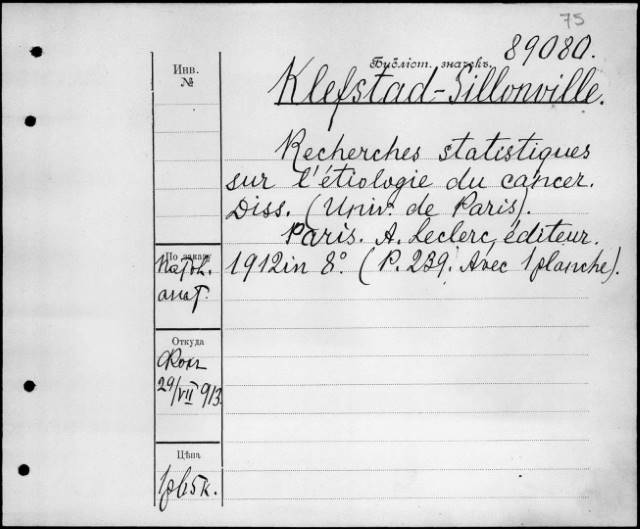 75
89080.
Библіот. значекъ
Инв.
№
Klefstad-Sillonville.
Recherches statistiques
sur l'étiologie du cancer.
Diss. (Univ. de Paris).
Paris. A. Leclerc, éditeur.
1912 in 8°. (P. 239. Avec 1 planche).
По заказу
Патол.
анат.
Откуда
29/VII 913.
Цѣна
1р65к.